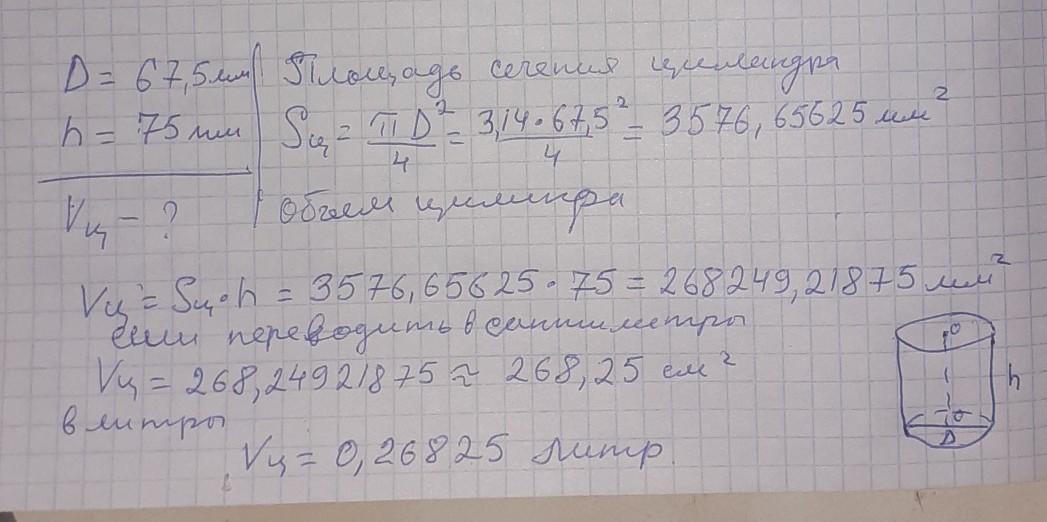 D = 67,5 мм
h = 75 мм
Vц - ?
Площадь сечения цилиндра
Sц = πD²/4 = 3,14·67,5²/4 = 3576,65625 мм²
Объем цилиндра
Vц = Sц·h = 3576,65625·75 = 268249,21875 мм²
если переводить в сантиметры
Vц = 268,24921875 ≈ 268,25 см²
в литры
Vц = 0,26825 литр.
O
h
O
D